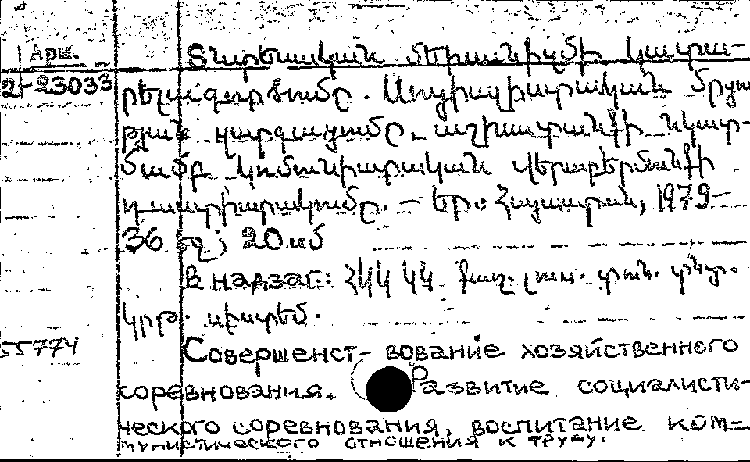 Арм. Տնտեսական մեխանիզմի կատա-
2-23033 րելագործումը. Սոցիալիստական մրցու-
թյան զարգացումը, աշխատանքի նկատ-
մամբ կոմունիստական վերաբերմունքի
դաստիարակումը. — Եր.: Հայաստան, 1979—
36 էջ; 20սմ
В надзаг.: ՀԿԿ ԿԿ. քաղ. լուս. տան. տնտ.
կրթ. սիստեմ.
55774 Совершенст- вование хозяйственного
соревнования. Развитие социалисти-
ческого соревнования, воспитание ком-
мунистического отношения к труду.